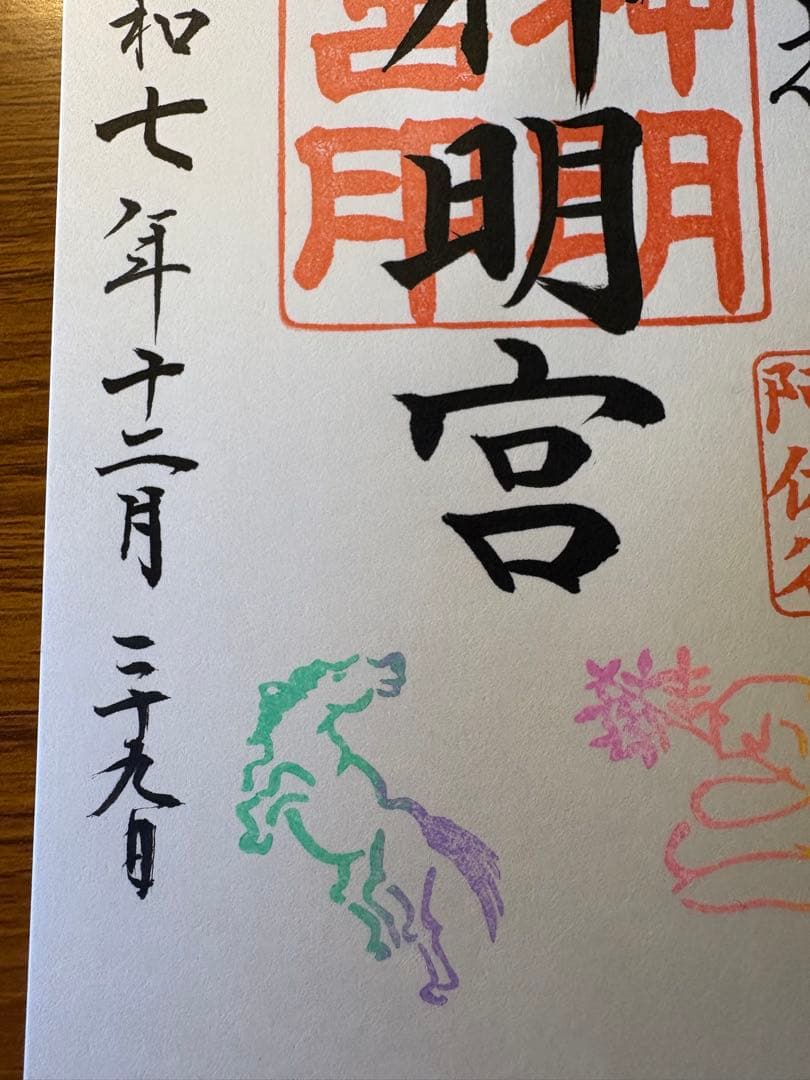 神明宮
神明宮印
和七年十二月二十九日